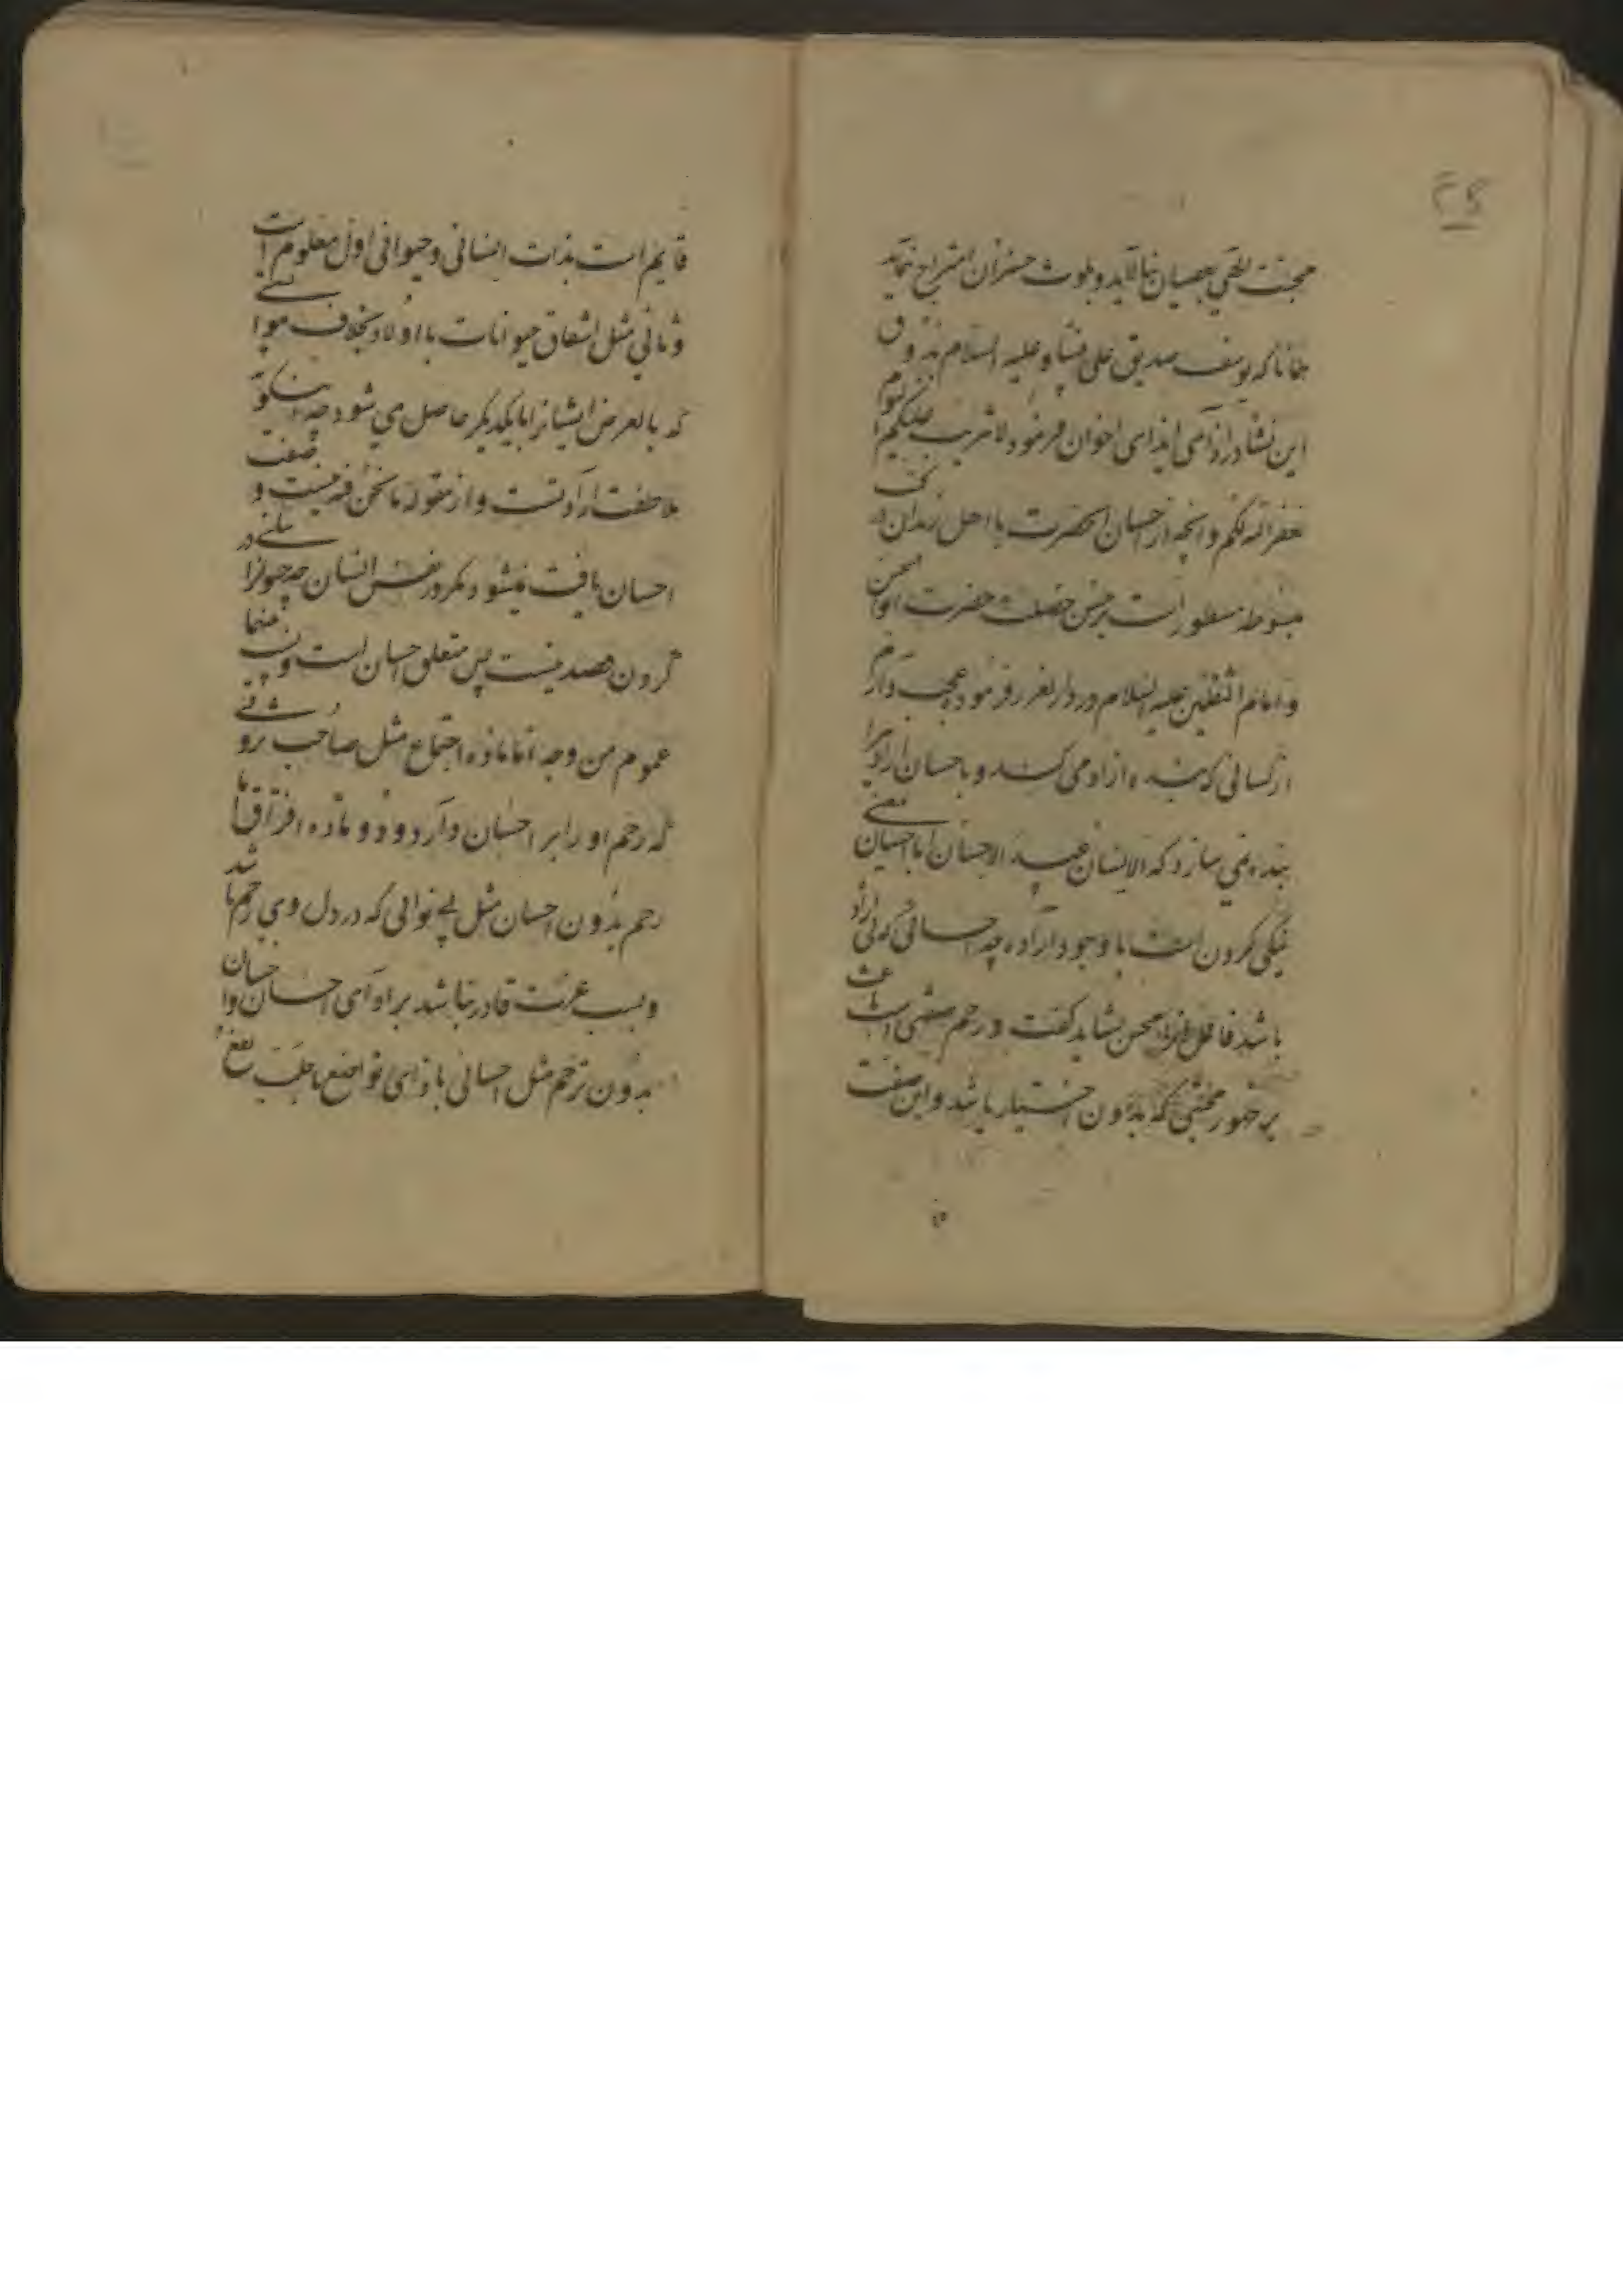 ۲۵
بعصیان نیالاید و بلوث خسران امتزاج ننماید
همانا که یوسف صدیق علی نبینا و علیه السلام بذوق
این نشاء در ازای ایذای اخوان فرمود لا تثریب علیکم الیوم
یغفر الله لکم و آنچه از احسان آنحضرت با اهل زندان در کتب
مبسوطه مسطور است بر حسن خصلت حضرت ابوالحسن
و امام الثقلین علیه السلام در در الغرر فرموده عجب دارم
از کسانی که بنده آزاد می کنند و باحسان آزاد را
بنده نمی سازد که الانسان عبید الاحسان اما احسان بمعنی
نیکی کردن است با وجود اراده چه احسانی که بی اراده
باشد فاعل انرا محسن نشاید گفت و رحم صفتی است باعث
بر ظهور بخشی که بدون اختیار باشد و این صفت
قایم است بذات انسانی و حیوانی اول معلوم است
و ثانی مثل اشفاق حیوانات با اولاد بخلاف
که بالعرض ایشانرا با یکدیگر حاصل می شود چه
ارادتست و از مقوله ما نحن فیه نیست و صفت
احسان یافت نمیشود مگر در نفس انسان چه حیوانرا
کردن قصد نیست پس متعلق احسان است و بینهما
عموم من وجه اما ماده اجتماع مثل صاحب ثروتی
که رحم او را بر احسان وا دارد و دو ماده افتراق اما
رحم بدون احسان مثل بی نوائی که در دل وی رحم باشد
و بسبب عسرت قادر نباشد بر ادای احسان و احسان
بدون ترحم مثل احسانی بازای تواضع یا جلب نفع